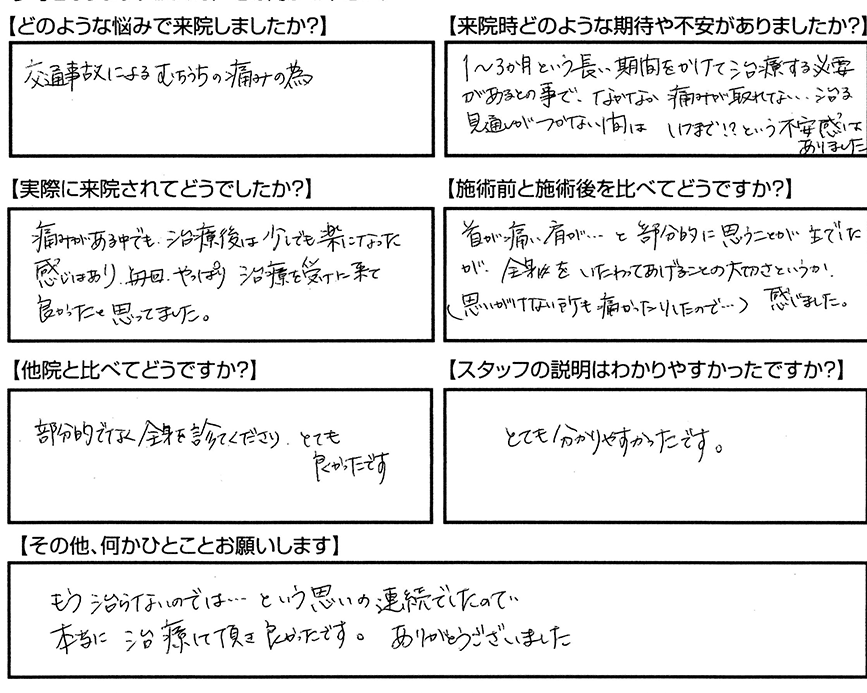 【どのような悩みで来院しましたか?】
交通事故によるむちうちの痛みの為
【来院時どのような期待や不安がありましたか?】
1～3か月という長い期間をかけて治療する必要
があるとの事で、なかなか痛みが取れない…治る
見通しがつかない間は いつまで!?という不安感は
ありました
【実際に来院されてどうでしたか?】
痛みがある中でも、治療後は少しでも楽になった
感じはあり、毎回、やっぱり 治療を受けに来て
良かったと思ってました。
【施術前と施術後を比べてどうですか?】
首が痛い、肩が…と部分的に思うことが主でした
が、全身をいたわってあげることの大切さというか、
(思いがけない所も痛かったりしたので…) 感じました。
【他院と比べてどうですか?】
部分的でなく全身を診てくださり、とても
良かったです
【スタッフの説明はわかりやすかったですか?】
とても分かりやすかったです。
【その他、何かひとことお願いします】
もう治らないのでは…という思いの連続でしたので、
本当に 治療して頂き良かったです。 ありがとうございました